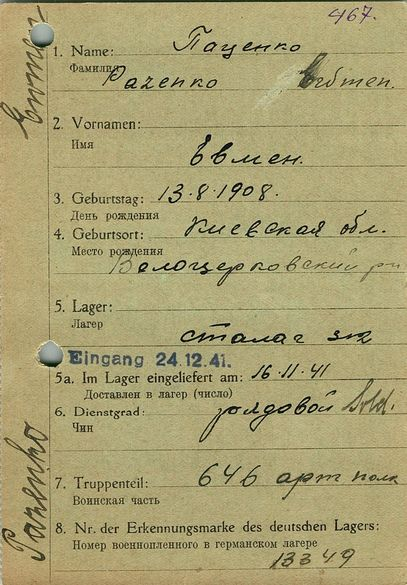 467.
1. Name: Паценко
Фамилия
Pazenko Ewmen.
2. Vornamen:
Имя
Евмен.
3. Geburtstag: 13.8.1908.
День рождения
4. Geburtsort: Киевская обл.
Место рождения
Белоцерковский р-н
5. Lager:
Лагерь
сталаг 312
Eingang 24.12.41.
5a. Im Lager eingeliefert am: 16.11.41
Доставлен в лагерь (число)
6. Dienstgrad: рядовой Sold.
Чин
7. Truppenteil: 646 арт полк
Воинская часть
8. Nr. der Erkennungsmarke des deutschen Lagers:
Номер военнопленного в германском лагере
13349
Ewmen
Pazenko